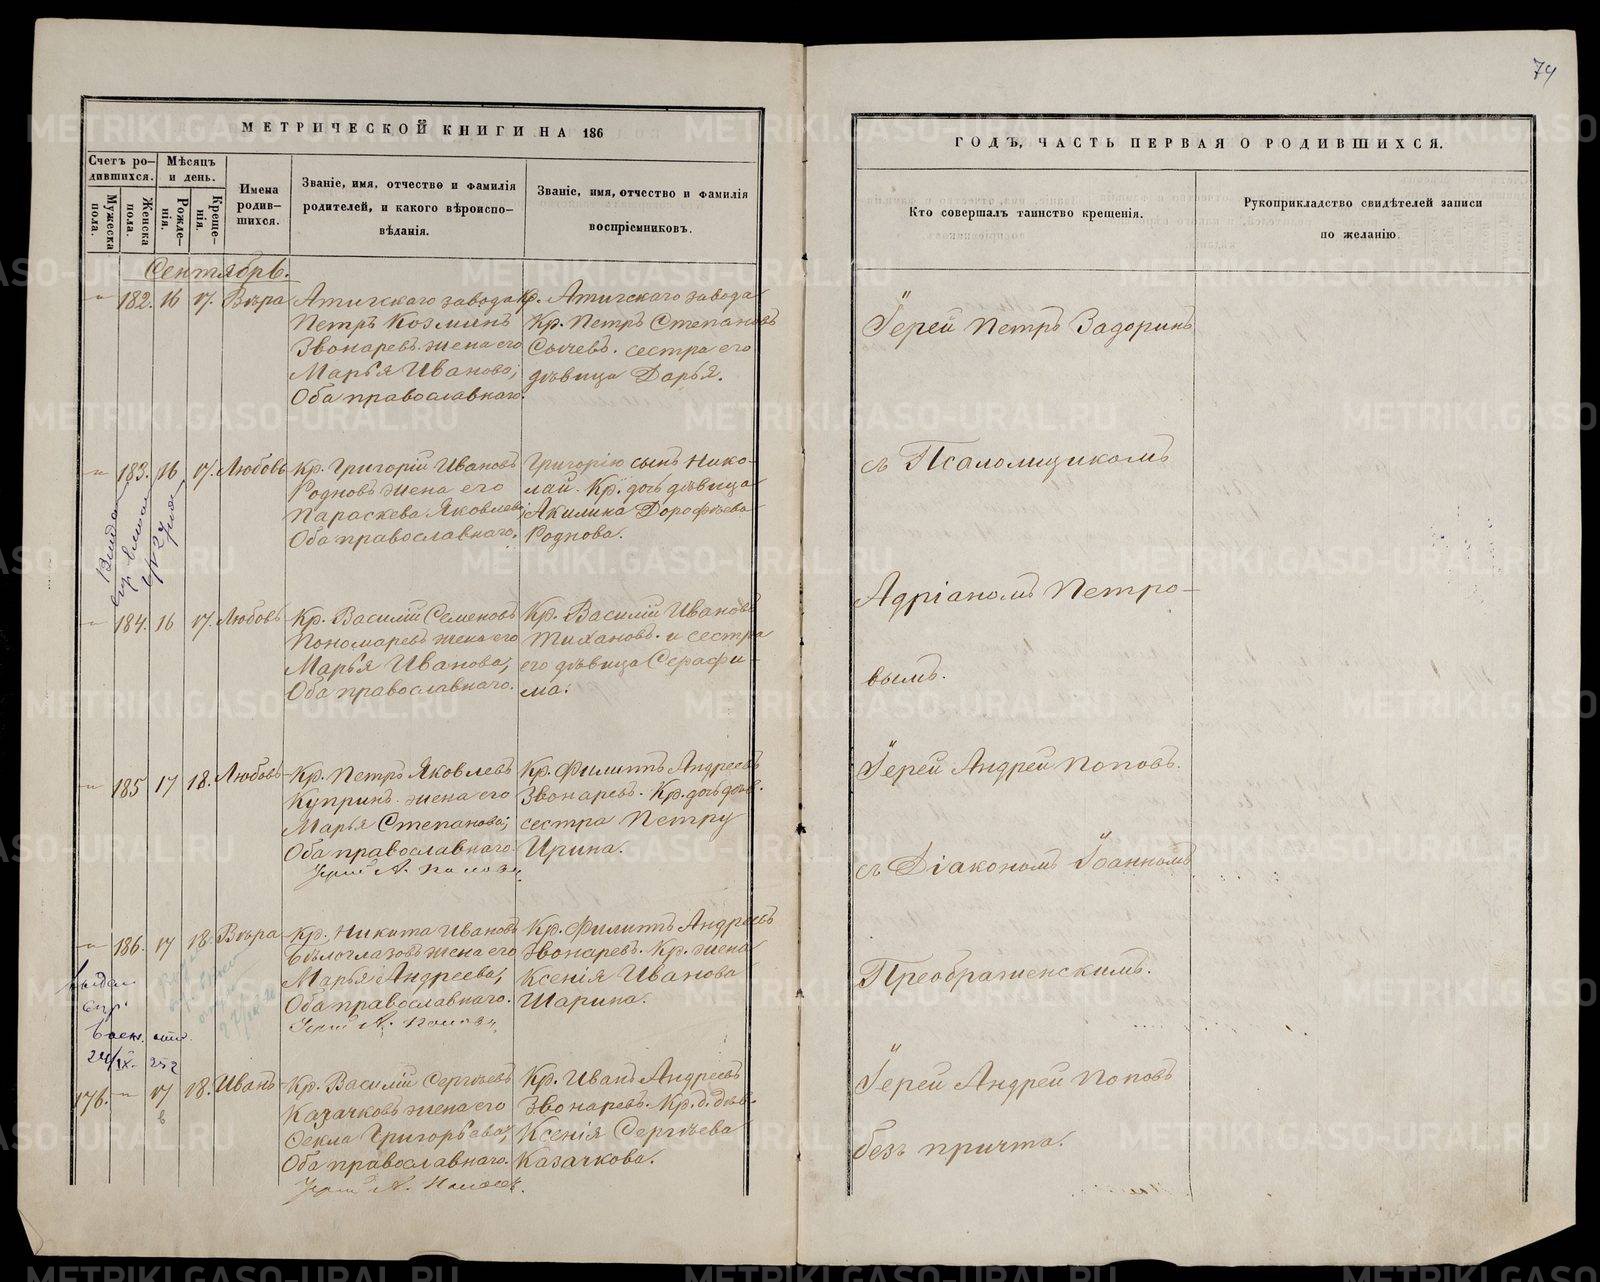 74
МЕТРИЧЕСКОЙ КНИГИ НА 186
ГОДЪ, ЧАСТЬ ПЕРВАЯ О РОДИВШИХСЯ.
Счетъ ро-
дившихся.
Мужеска
пола.
Женска
пола.
Мѣсяцъ
и день.
Рожде-
нія.
Креще-
нія.
Имена
родив-
шихся.
Званіе, имя, отчество и фамилія
родителей, и какого вѣроиспо-
вѣданія.
Званіе, имя, отчество и фамилія
воспріемниковъ.
Кто совершалъ таинство крещенія.
Рукоприкладство свидѣтелей записи
по желанію.
Сентябрь.
" 182. 16 17. Вѣра
Атигскаго завода
Петръ Козминъ
Звонаревъ жена его
Марья Иванова;
Оба православнаго.
Кр. Атигскаго завода
Кр. Петръ Степановъ
Сычевъ. сестра его
дѣвица Дарья.
" 183. 16 17. Любовь
Кр. Григорій Ивановъ
Родновъ жена его
Параскева Яковлева;
Оба православнаго.
Григорію сынъ Нико-
лай. Кр. дочь дѣвица
Акилина Дорофѣева
Роднова.
" 184. 16 17. Любовь
Кр. Василій Семеновъ
Пономаревъ жена его
Марья Иванова;
Оба православнаго.
Кр. Василій Ивановъ
Тихановъ. и сестра
его дѣвица Серафи-
ма.
" 185 17 18. Любовь
Кр. Петръ Яковлевъ
Купринъ. жена его
Марья Степанова;
Оба православнаго
Іерей А. Поповъ
Кр. Филиппъ Андреевъ
Звонаревъ. Кр. дочь дѣв.
сестра Петру
Ирина.
" 186. 17 18. Вѣра
Кр. Никита Ивановъ
Бѣлоглазовъ жена его
Марья Андреева;
Оба православнаго.
Іерей А. Поповъ
Кр. Филиппъ Андреевъ
Звонаревъ. Кр. жена
Ксенія Иванова
Шарина.
176. " 17 18. Иванъ
Кр. Василій Сергѣевъ
Казачковъ жена его
Секла Григорьева;
Оба православнаго.
Іерей А. Поповъ
Кр. Иванъ Андреевъ
Звонаревъ. Кр. д. дѣв.
Ксенія Сергѣева
Казачкова.
Іерей Петръ Задоринъ
съ Псаломщикомъ
Адріаномъ Петро-
вымъ.
Іерей Андрей Поповъ.
съ Діакономъ Іоанномъ
Преображенскимъ.
Іерей Андрей Поповъ
безъ причта.
METRIKI.GASO-URAL.RU